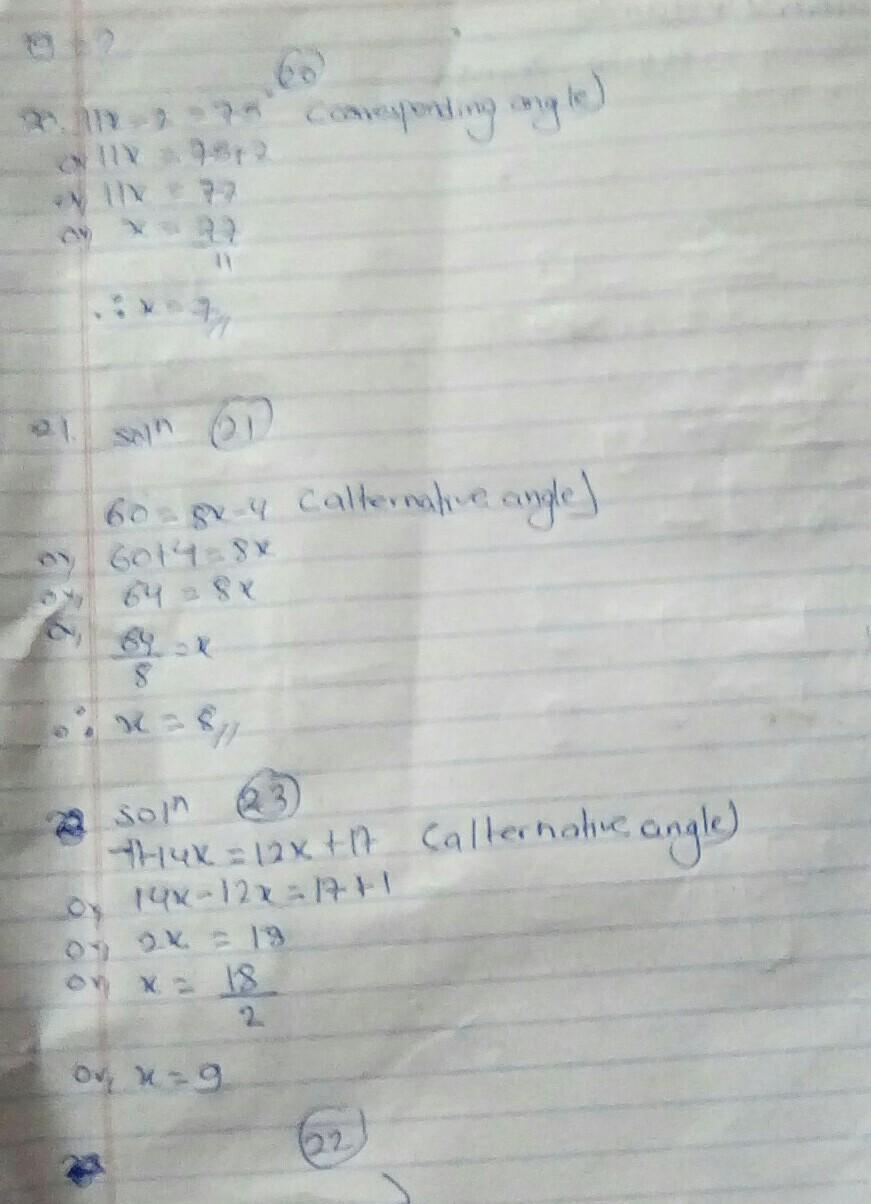 (20)
20. 11x-2 = 75° (corresponding angle)
or 11x = 75+2
or 11x = 77
or, x = 77
11
∴ x = 7//
21. solⁿ (21)
60 = 8x-4 (alternative angle)
or, 60+4 = 8x
or, 64 = 8x
or, 64/8 = x
∴ x = 8//
solⁿ (23)
-1+14x = 12x+17 (alternative angle)
or, 14x-12x = 17+1
or, 2x = 18
or, x = 18/2
or, x = 9
(22)